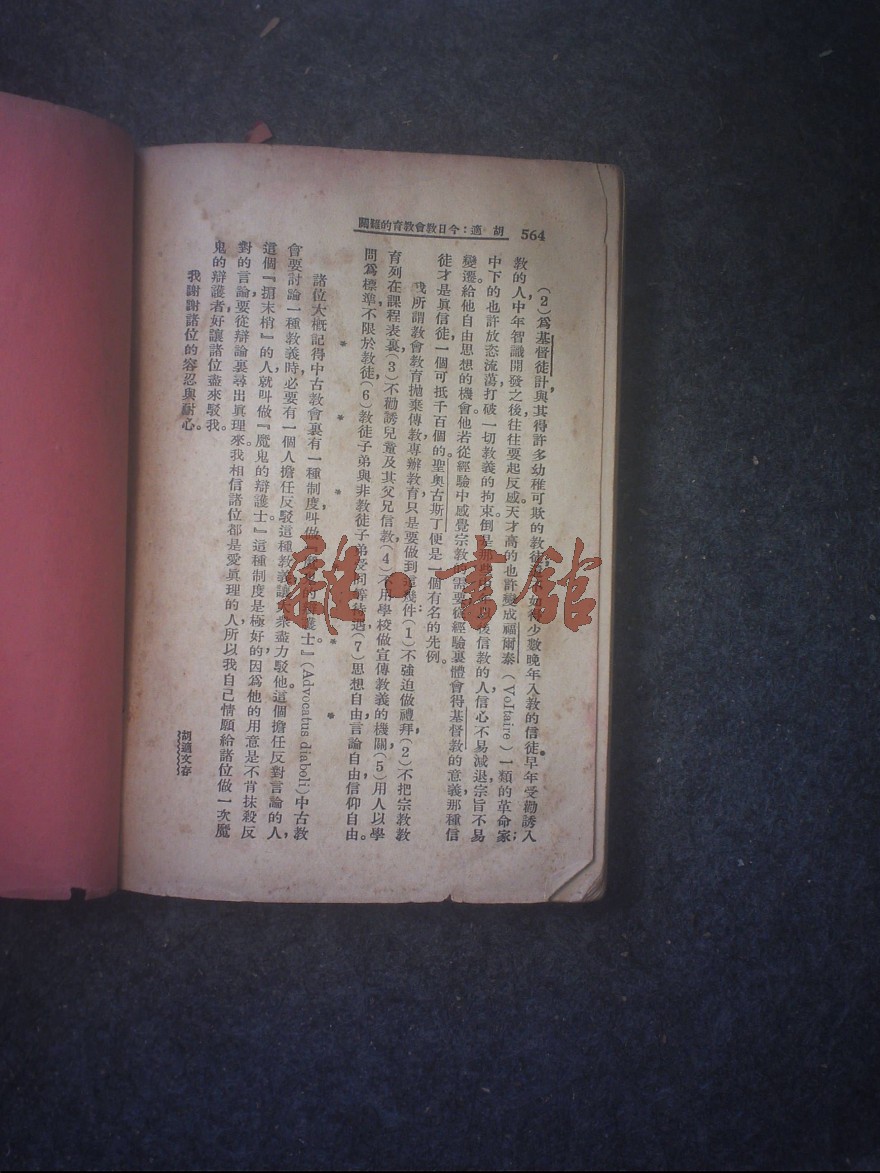 564
胡適：今日教會教育的難關
（2）爲基督徒計，與其得許多幼稚可欺的教徒，還不如得少數晚年入教的信徒。早年受勸誘入
教的人，中年智識開發之後，往往要起反感。天才高的也許變成福爾泰（Voltaire）一類的革命家；
中下的也許放恣流蕩，打破一切教義的拘束。倒是那些中年以後信教的人，信心不易減退，宗旨不易
變遷。給他自由思想的機會，他若從經驗中感覺宗教的需要，從經驗裏體會得基督教的意義，那種信
徒才是眞信徒，一個可抵千百個的。聖奧古斯丁便是一個有名的先例。
我所謂教會教育拋棄傳教，專辦教育，只是要做到這幾件：（1）不強迫做禮拜，（2）不把宗教教
育列在課程表裏，（3）不勸誘兒童及其父兄信教，（4）不用學校做宣傳教義的機關，（5）用人以學
問爲標準，不限於教徒，（6）教徒子弟與非教徒子弟受同等待遇，（7）思想自由，言論自由，信仰自由。
* * * * * *
諸位大概記得中古教會裏有一種制度，叫做『魔鬼的辯護士』（Advocatus diaboli）。中古教
會要討論一種教義時，必要有一個人擔任反駁這種教義，讓大衆盡力駁他。這個擔任反對言論的人，
這個『掮末梢』的人，就叫做『魔鬼的辯護士』。這種制度是極好的，因爲他的用意是不肯抹殺反
對的言論，要從辯論裏尋出眞理來。我相信諸位都是愛眞理的人，所以我自己情願給諸位做一次魔
鬼的辯護者，好讓諸位盡來駁我。
我謝謝諸位的容忍與耐心。
胡適文存
雜·書館